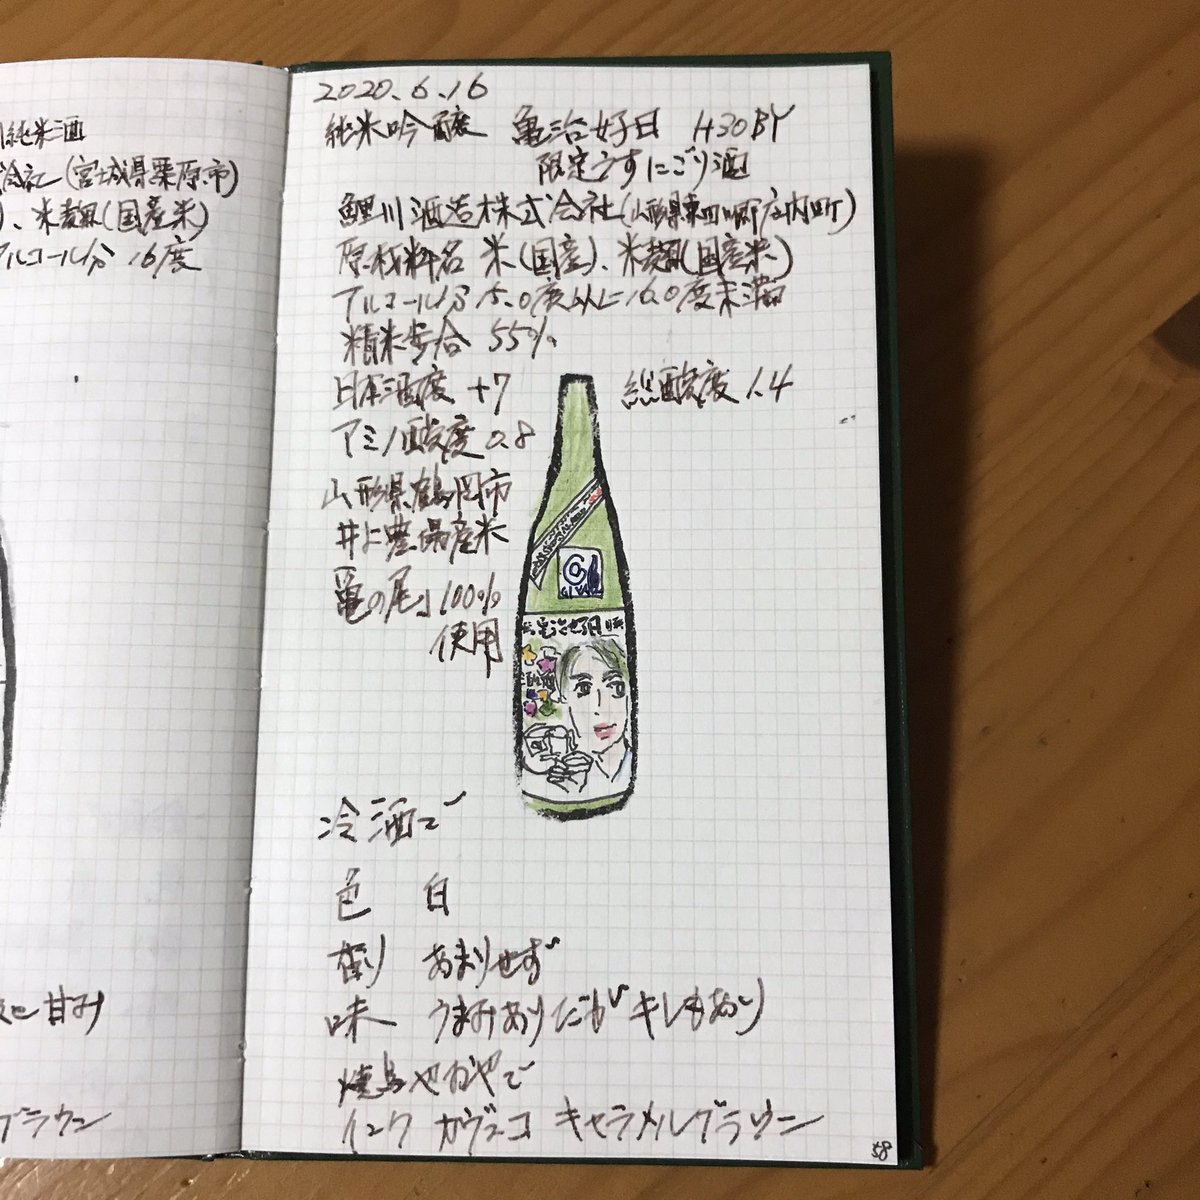 純米酒
会社(宮城県栗原市)
)、米麹(国産米)
アルコール分 16度
甘み
ブラウン
2020.6.16
純米吟醸 亀治好日 H30BY
限定うすにごり酒
鯉川酒造株式会社(山形県東田川郡庄内町)
原材料名 米(国産)、米麹(国産米)
アルコール分15.0度以上16.0度未満
精米歩合 55%
日本酒度 +7 総酸度 1.4
アミノ酸度 0.8
山形県鶴岡市
井上農場産米
亀の尾」100%
使用
亀治好日
冷酒で
色 白
香り あまりせず
味 うまみあり だが キレもあり
焼鳥やがやで
インク カヴェコ キャラメルブラウン
58